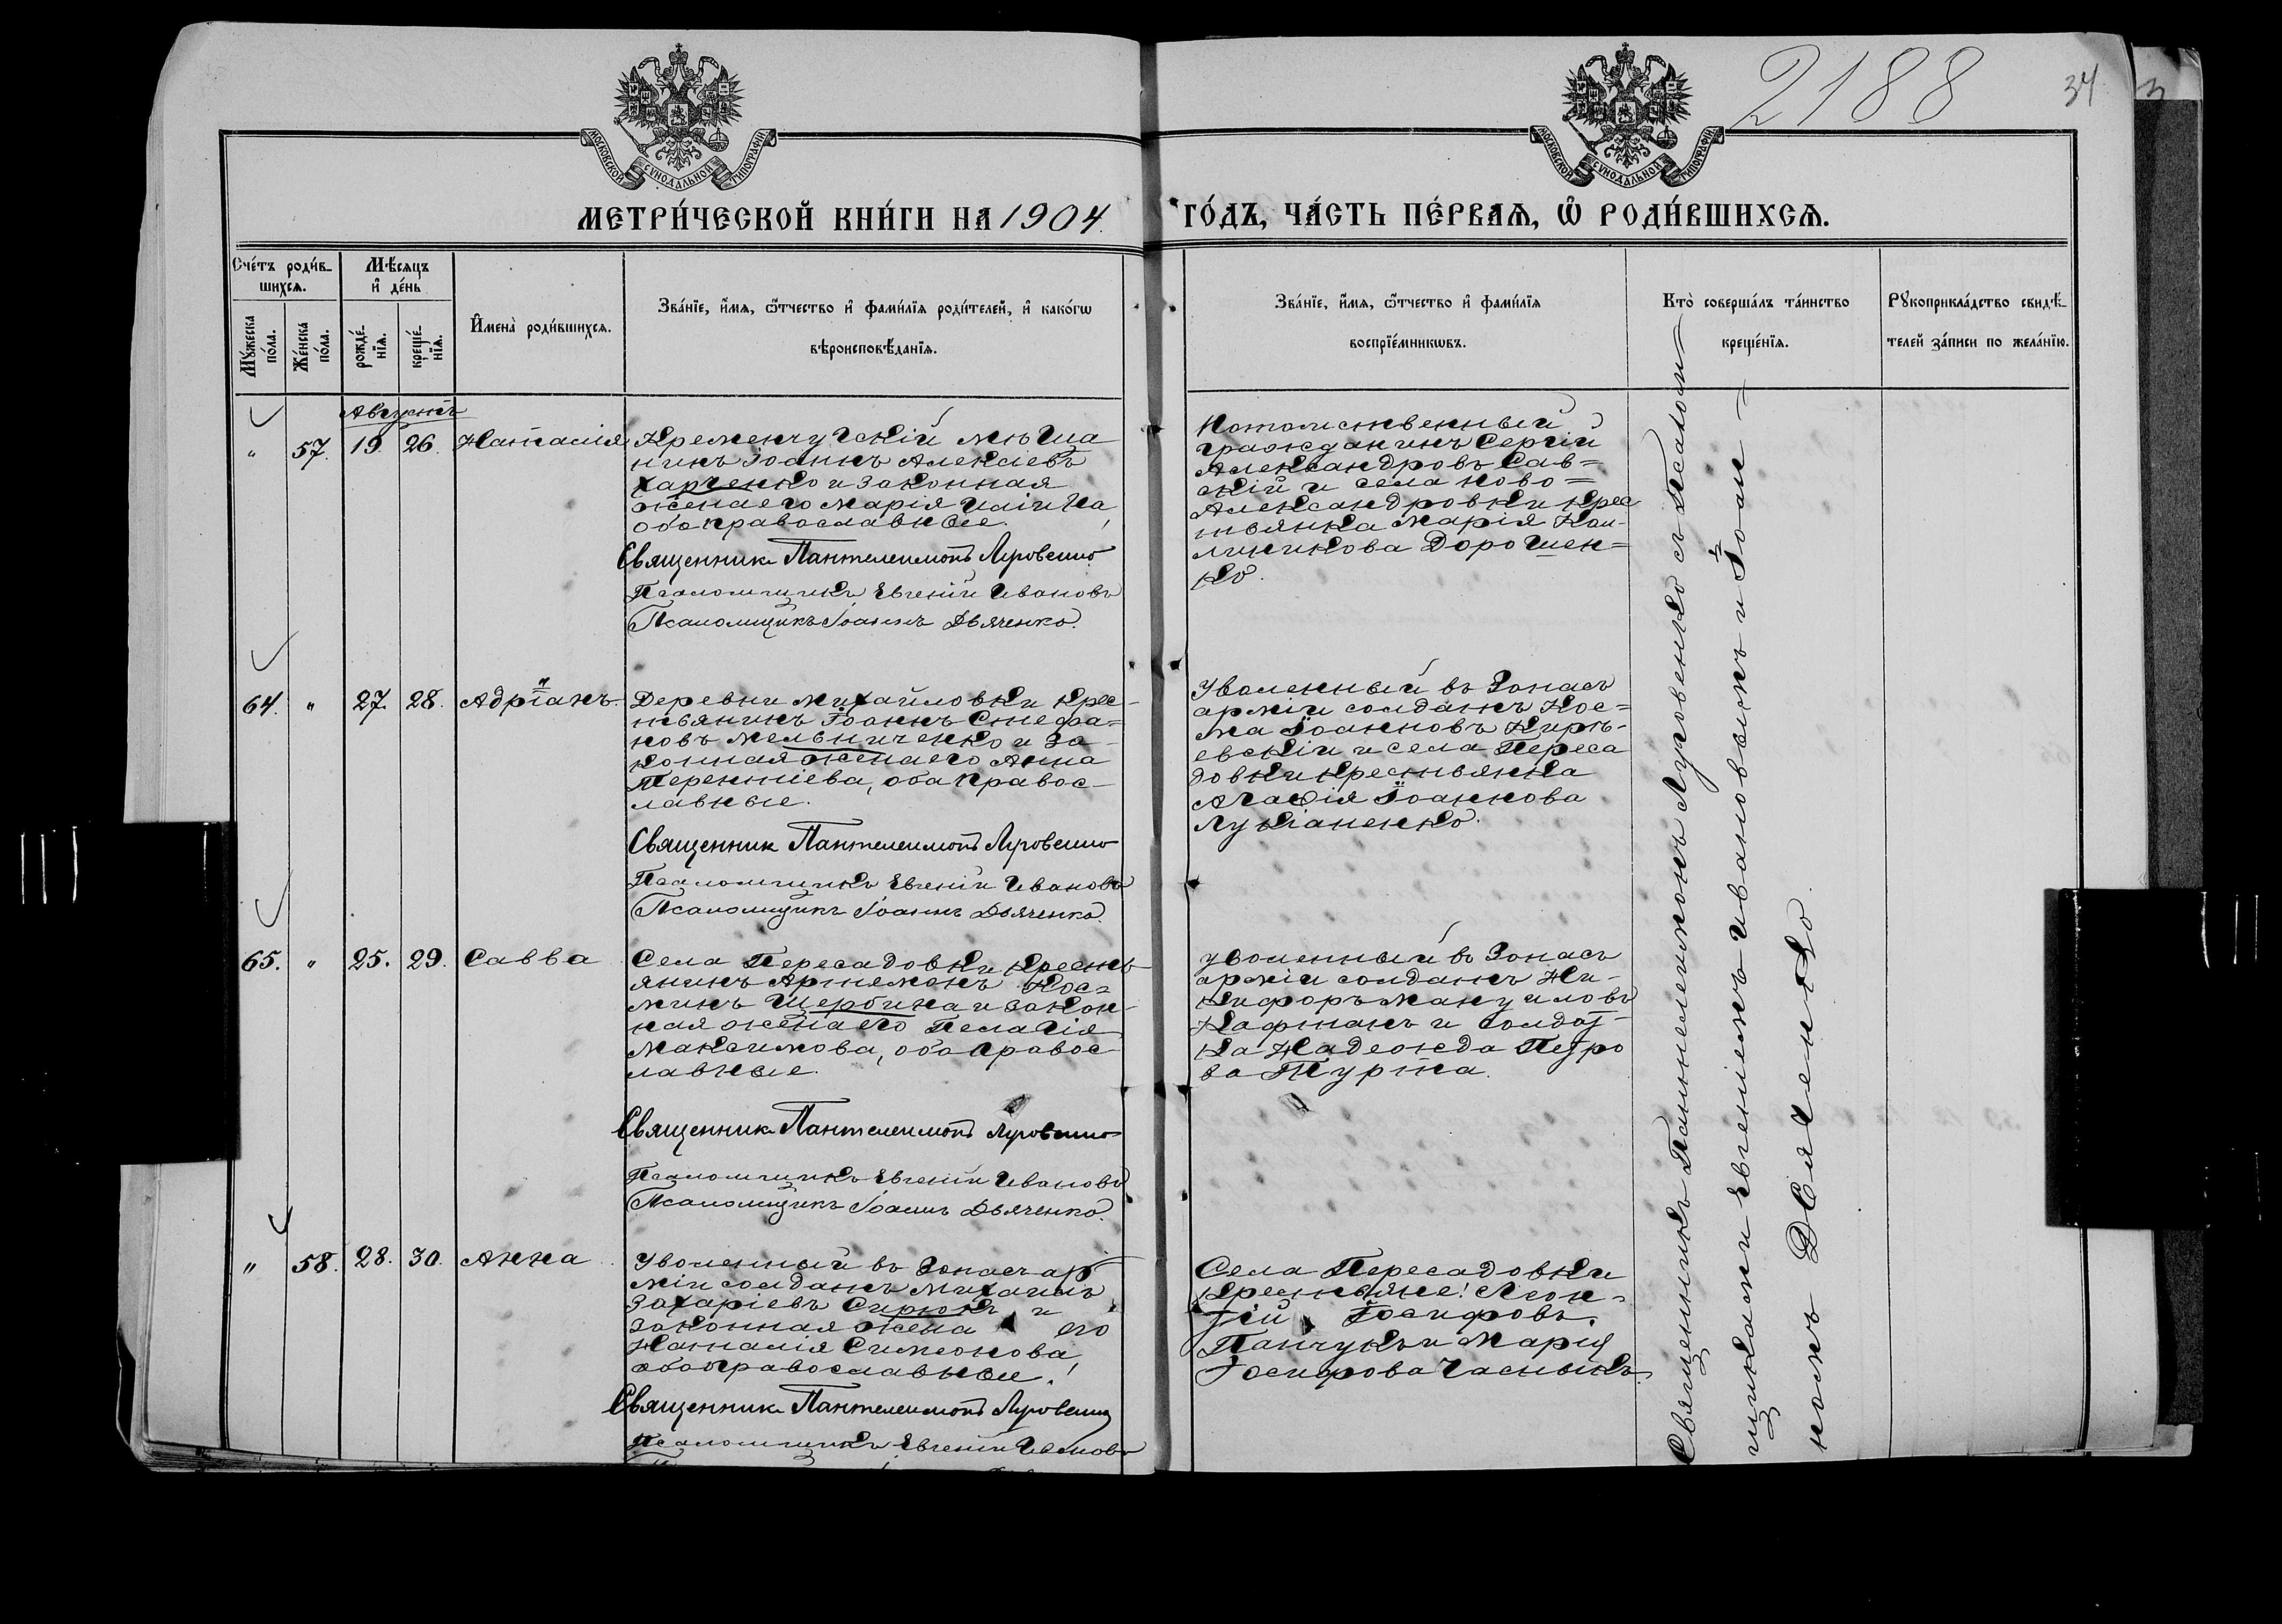 2188
34
МОСКОВСКОЙ СѴНОДАЛЬНОЙ ТИПОГРАФІИ
МОСКОВСКОЙ СѴНОДАЛЬНОЙ ТИПОГРАФІИ
МЕТРИ́ЧЕСКОЙ КНИ́ГИ НА 1904.
ГО́ДЪ, ЧА́СТЬ ПЕ́РВАѦ, Ѡ҆ РОДИ́ВШИХСѦ.
Сче́тъ роди́в-
шихсѧ.
Мꙋ́жеска
по́ла.
Же́нска
по́ла.
Мѣ́сѧцъ
и҆ де́нь
рожде́-
нїѧ.
креще́-
нїѧ.
И҆мена̀ роди́вшихсѧ.
Зва́нїе, и҆́мѧ, ѻ҆́тчество и҆ фами́лїѧ роди́телей, и҆ како́гѡ
вѣроисповѣ́данїѧ.
Зва́нїе, и҆́мѧ, ѻ҆́тчество и҆ фами́лїѧ
воспрїе́мникѡвъ.
Кто̀ соверша́лъ та́инство
креще́нїѧ.
Рꙋкоприкла́дство свидѣ́-
телей за́писи по жела́нїю.
Августъ
" 57. 19. 26. Наталія
Кременчугскій мѣща
нинъ Іоаннъ Алексіевъ
Харченко и законная
жена его Марія Иліина
оба православные.
Священник Пантелеимонъ Луговенко
Псаломщикъ Евгеній Ивановъ
Псаломщикъ Іоаннъ Дьяченко.
Потомственный
гражданинъ Сергій
Александровъ Сав=
скій и села Ново=
Александровки крес
тьянка Марія Кал-
линикова Дорошен=
ко.
64. " 27. 28. Адріанъ.
Деревни Михайловки крес-
тьянинъ Іоаннъ Стефа=
новъ Мельниченко и за-
конная жена его Анна
Терентіева, оба правос-
лавные.
Священник Пантелеимонъ Луговенко
Псаломщикъ Евгеній Ивановъ
Псаломщикъ Іоаннъ Дьяченко.
Уволенный въ запасъ
арміи солдатъ Кос=
ма Іоанновъ Кирѣ-
евскій и села Переса
довки крестьянка
Агафія Іоаннова
Лукіаненко.
65. " 25. 29. Савва
Села Пересадовки кресть
янинъ Артемонъ Кос=
минъ Щербина и закон-
ная жена его Пелагія
Максимова, оба правос-
лавные.
Священник Пантелеимонъ Луговенко
Псаломщикъ Евгеній Ивановъ
Псаломщикъ Іоаннъ Дьяченко.
Уволенный въ запасъ
арміи солдатъ Ни-
кифоръ Мануиловъ
Кафтанъ и солдат-
ка Надежда Петро
ва Турта.
" 58. 28. 30. Анна
Уволенный въ запасъ ар
міи солдатъ Михаилъ
Захаріевъ Сирюкъ и
законная жена его
Наталія Симеонова
оба православные.
Священник Пантелеимонъ Луговенко
Псаломщикъ Евгеній Ивановъ
Села Пересадовки
крестьяне: Леон-
тій Іосифовъ
Панчукъ и Марія
Іосифова Часныкъ.
Священникъ Пантелеимонъ Луговенко съ псалом=
щиками Евгеніемъ Ивановымъ и Іоан-
номъ Дьяченко.